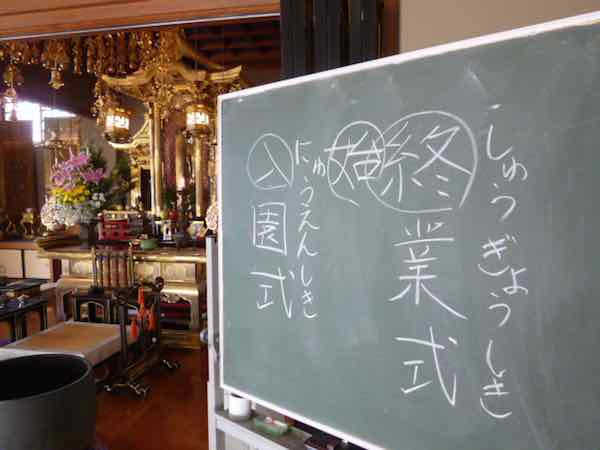 しゅうぎょうしき
終業式
始
にゅうえんしき
入園式